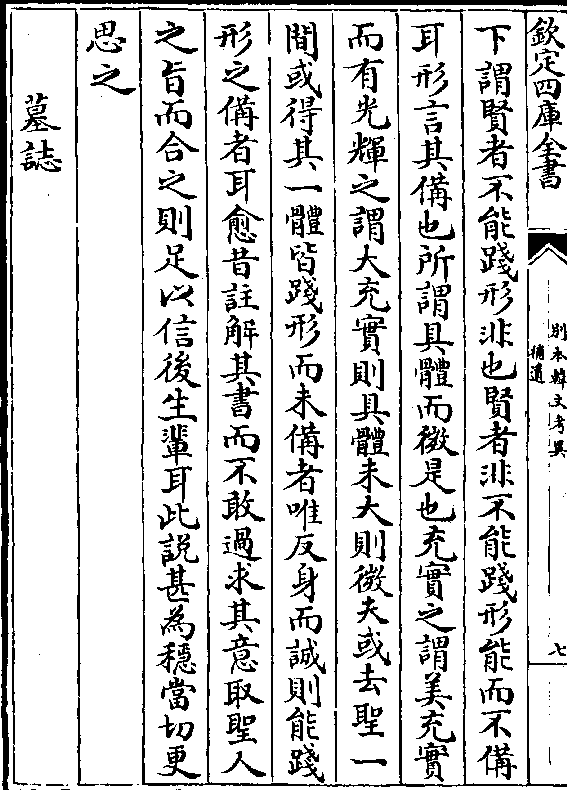 欽定四庫全書
別本韓文考異
補遺
七
下謂賢者不能踐形非也賢者非不能踐形能而不備
耳形言其備也所謂具體而微是也充實之謂美充實
而有光輝之謂大充實則具體未大則微夫或去聖一
間或得其一體皆踐形而未備者唯反身而誠則能踐
形之備者耳愈昔註解其書而不敢過求其意取聖人
之旨而合之則足以信後生輩耳此說甚為穩當切更
思之
墓誌